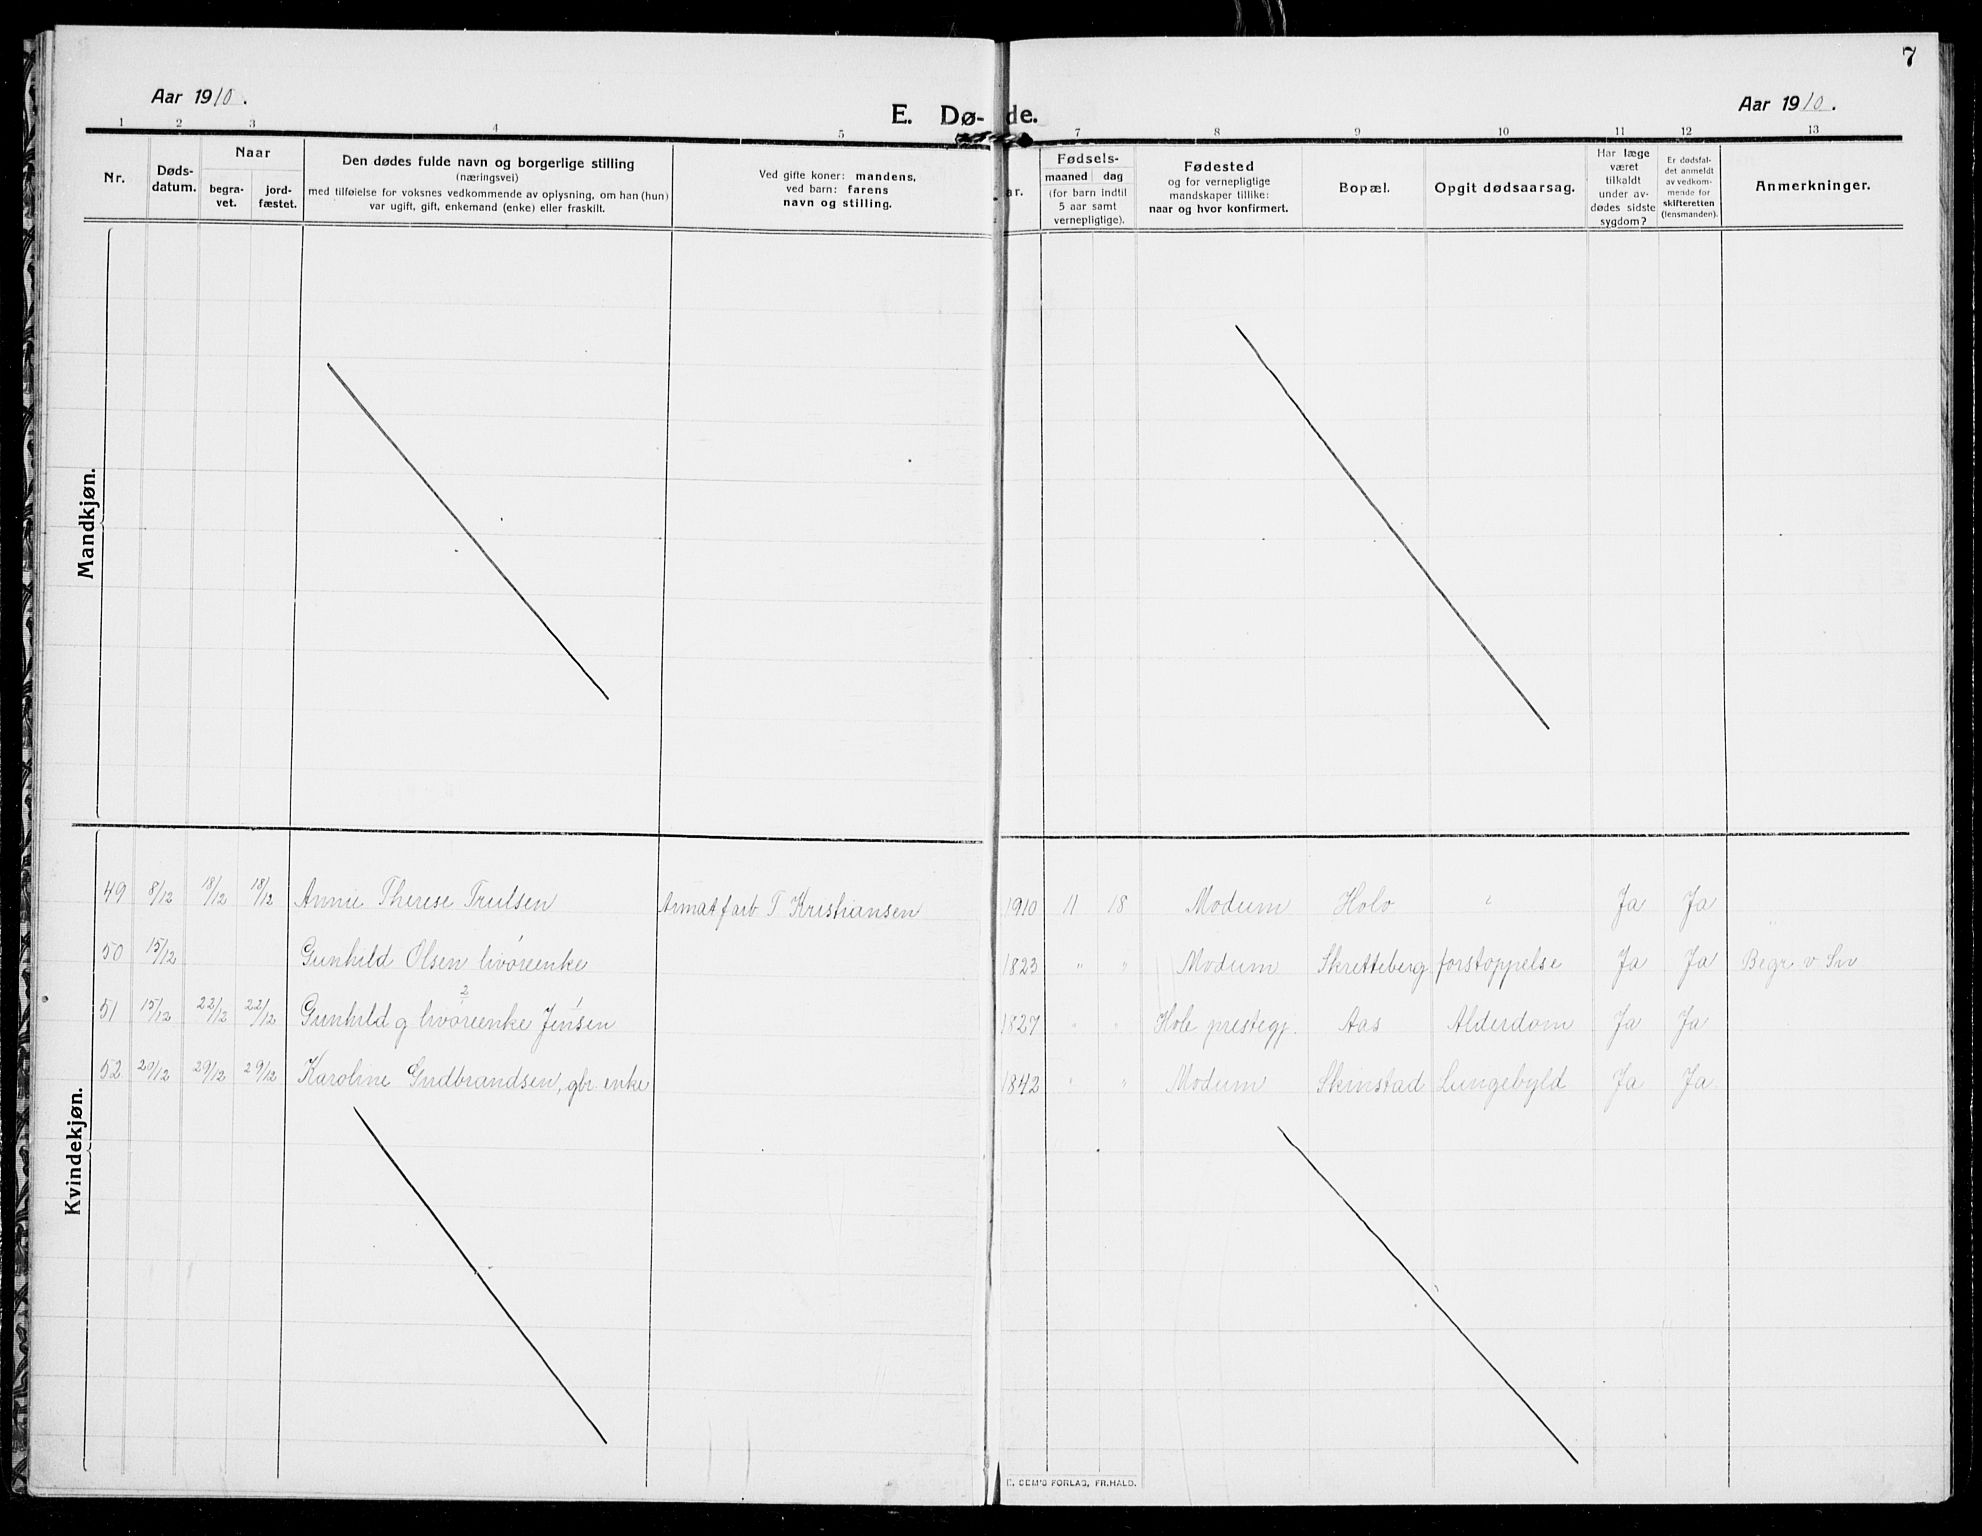 7
Aar 1910.
E. Dø- de.
Aar 1910.
1 2 3 4 5 7 8 9 10 11 12 13
Nr.
Døds-
datum.
Naar
begra-
vet.
jord-
fæstet.
Den dødes fulde navn og borgerlige stilling
(næringsvei)
med tilføielse for voksnes vedkommende av oplysning, om han (hun)
var ugift, gift, enkemand (enke) eller fraskilt.
Ved gifte koner: mandens,
ved barn: farens
navn og stilling.
ar.
Fødsels-
maaned dag
(for barn indtil
5 aar samt
vernepligtige).
Fødested
og for vernepligtige
mandskaper tillike:
naar og hvor konfirmert.
Bopæl.
Opgit dødsaarsag.
Har læge
været
tilkaldt
under av-
dødes sidste
sygdom?
Er dødsfal-
det anmeldt
av vedkom-
mende for
skifteretten
(lensmanden).
Anmerkninger.
Mandkjøn.
Kvindekjøn.
49 8/12 18/12 18/12 Annie Therese Trulsen Armatfarb T Kristiansen 1910 11 18 Modum Holo " Ja Ja
50 15/12 Gunhild Olsen livøreenke 1823 " " Modum Skretteberg forstoppelse Ja Ja Begr v Sn
51 15/12 22/12 22/12 Gunhild g livøreenke Jensen 1827 " " Hole prestegj. Aas Alderdom Ja Ja
52 20/12 29/12 29/12 Karoline Gudbrandsen, gbr. enke 1842 " " Modum Skinstad Lungebyld Ja Ja
FORLAG, FR.HALD.